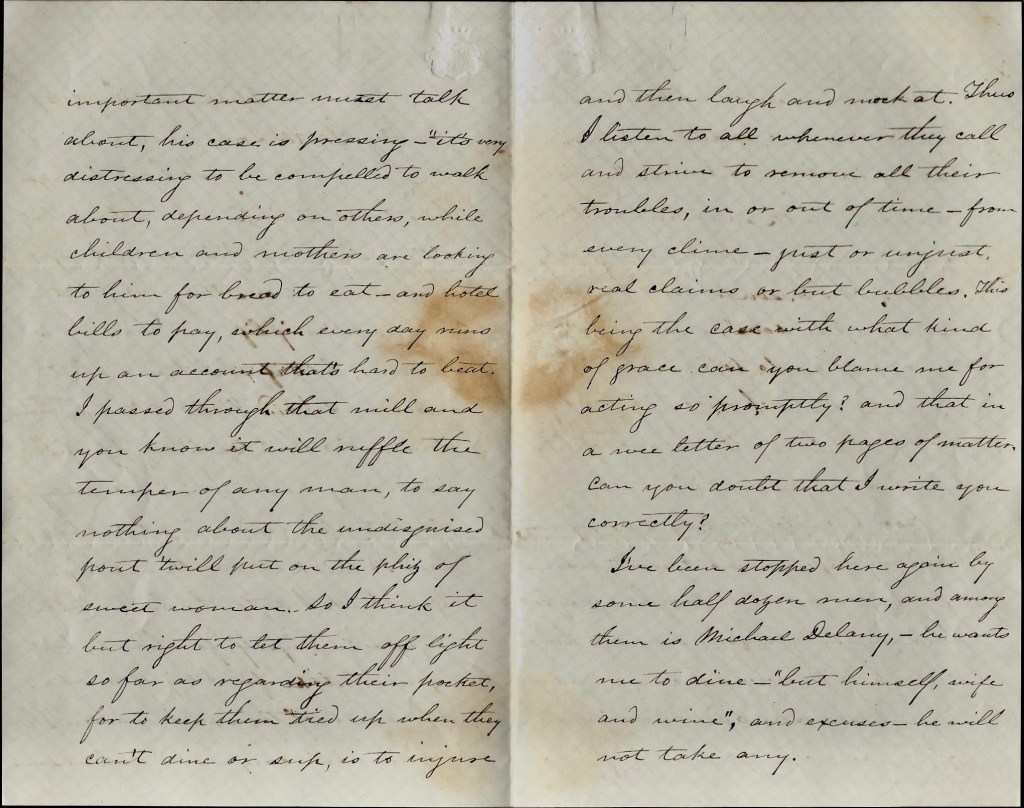 important matter must talk
about, his case is pressing – "it's very
distressing to be compelled to walk
about, depending on others, while
children and mothers are looking
to him for bread to eat – and hotel
bills to pay, which every day runs
up an account that's hard to beat.
I passed through that mill and
you know it will ruffle the
temper of any man, to say
nothing about the undisguised
pout 'twill put on the phiz of
sweet woman. So I think it
but right to let them off light
so far as regarding their pocket,
for to keep them tied up when they
can't dine or sup, is to injure
and then laugh and mock at. Thus
I listen to all whenever they call
and strive to remove all their
troubles, in or out of time – from
every clime – just or unjust,
real claims or but bubbles. This
being the case with what kind
of grace can you blame me for
acting so promptly? and that in
a wee letter of two pages of matter.
can you doubt that I write you
correctly?
I've been stopped here again by
some half dozen men, and among
them is Michael Delany, – he wants
me to dine – "but himself, wife
and wine", and excuses – he will
not take any.